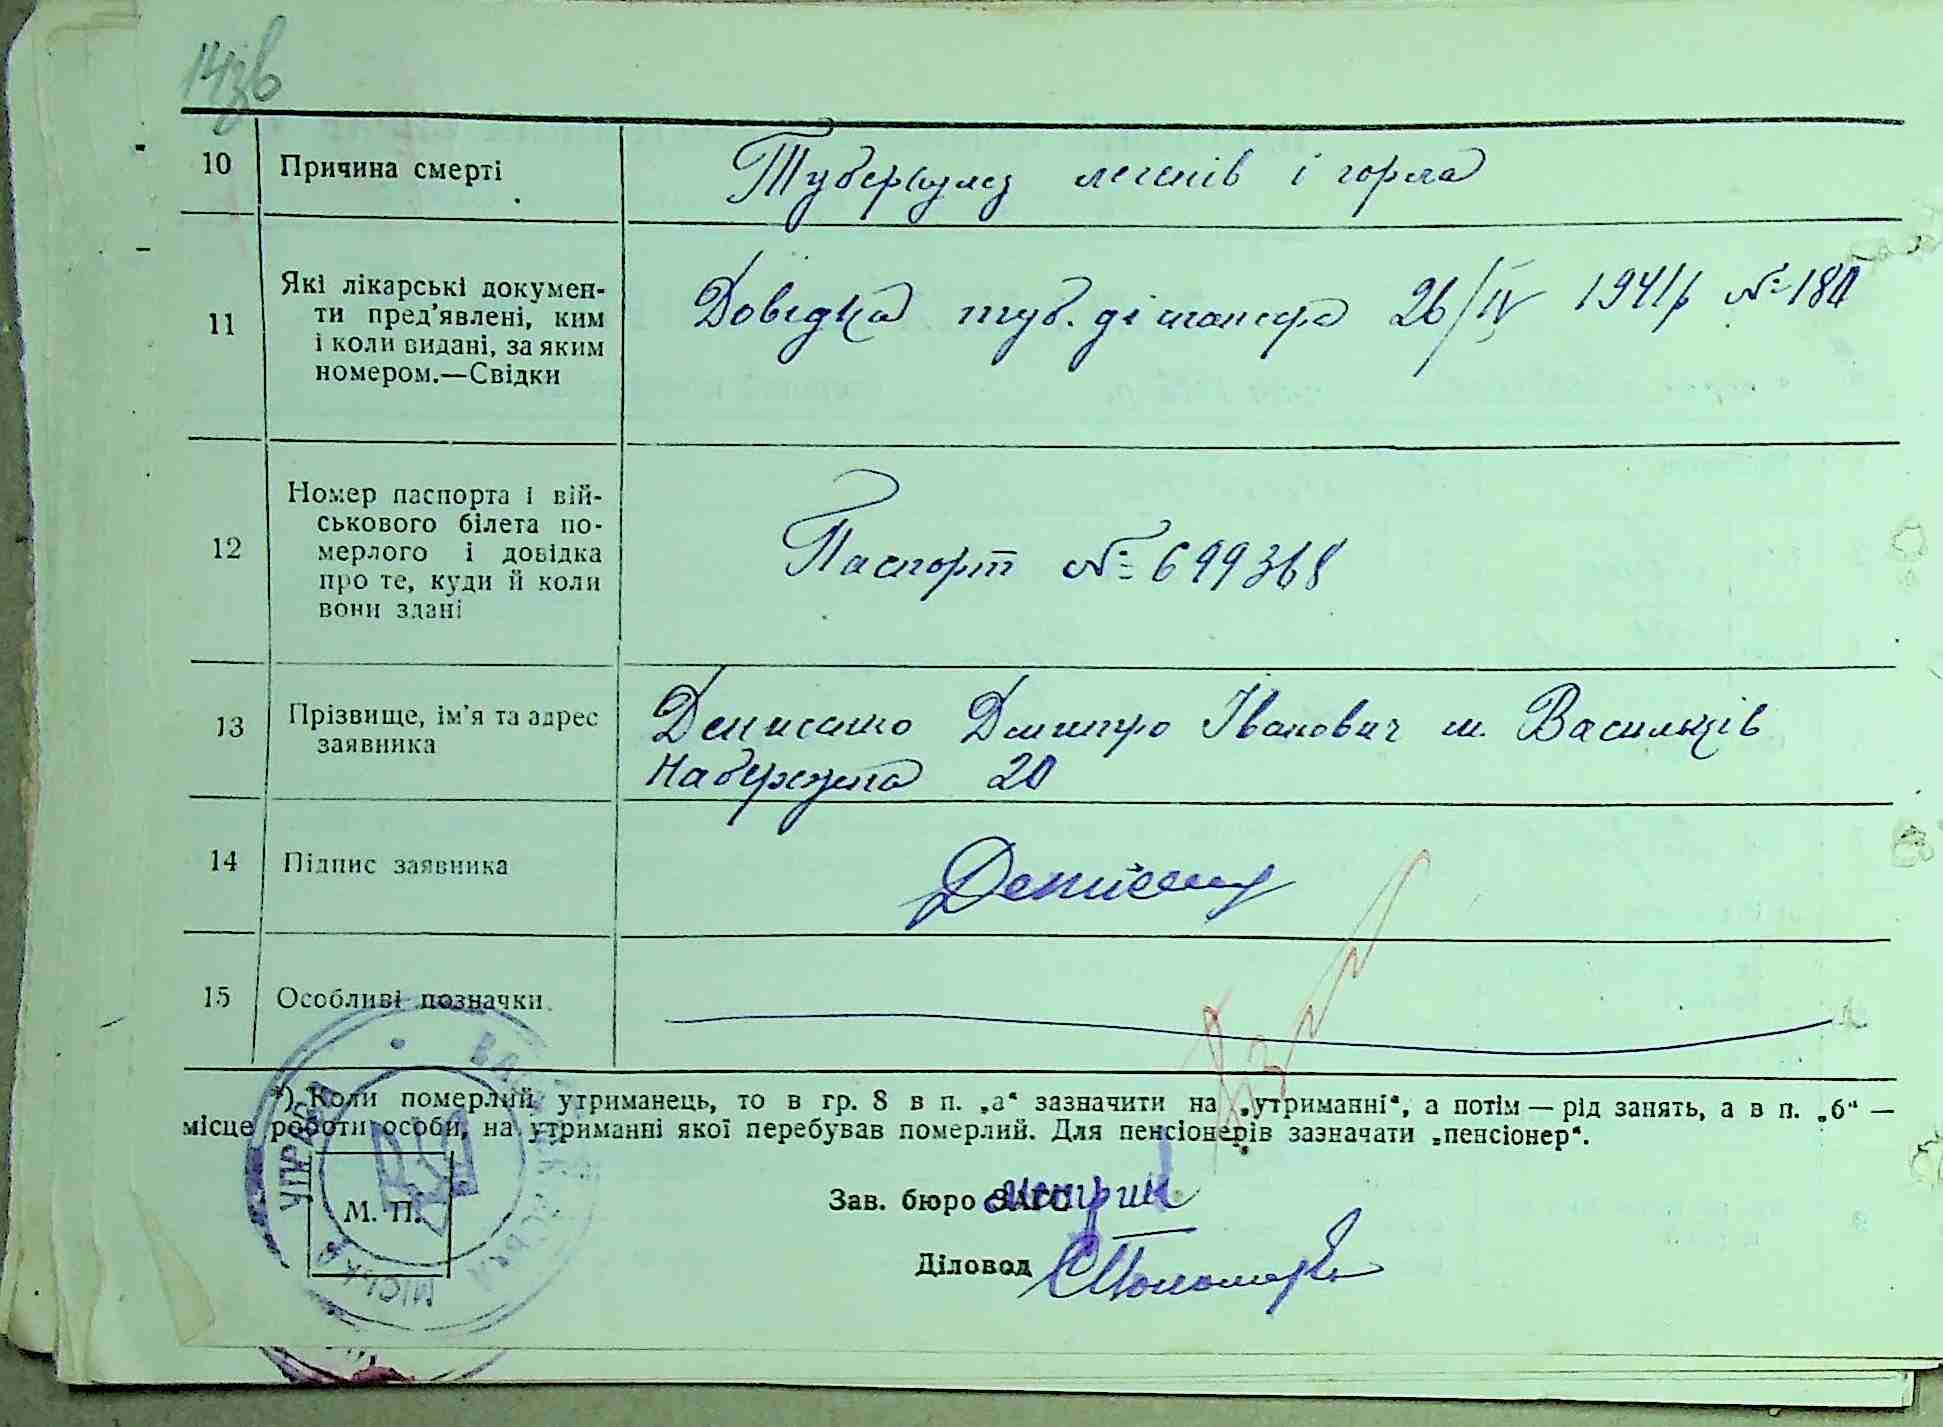 143в
10 Причина смерті Туберкульоз легенів і горла
11 Які лікарські докумен-
ти пред’явлені, ким
і коли видані, за яким
номером.—Свідки
Довідка туб. діспансера 26/IV 1941 р №
12 Номер паспорта і вій-
ськового білета по-
мерлого і довідка
про те, куди й коли
вони здані
Паспорт № 699368
13 Прізвище, ім’я та адрес
заявника
Денисенко Дмитро Іванович м. Васильків
Набережна 20
14 Підпис заявника
15 Особливі позначки
*) Коли померлий утриманець, то в гр. 8 в п. „а“ зазначити на „утриманні“, а потім — рід занять, а в п. „б“ —
місце роботи особи, на утриманні якої перебував померлий. Для пенсіонерів зазначати „пенсіонер“.
М. П.
МІСЬКА УПРАВА
Зав. бюро ЗАГС
Діловод